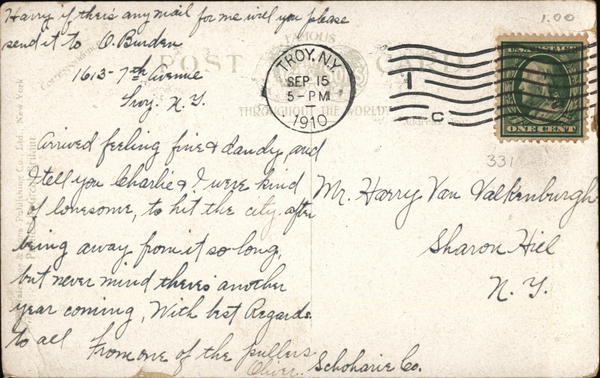 Harry if there's any mail for me will you please
send it to O. Burden
1613-7th avenue
Troy. N.Y.
Arrived feeling fine & dandy, and
I tell you Charlie & I were kind
of lonesome, to hit the city after
being away from it so long,
but never mind there's another
year coming, With best Regards
to all
From one of the pullers
Oliver.
1.00
POST CARD
FAMOUS
THROUGHOUT THE WORLD
TROY, N.Y.
SEP 15
5-PM
1910
1
C
ONE CENT
331
Mr. Harry Van Valkenburgh
Sharon Hill
N.Y.
Schoharie Co.